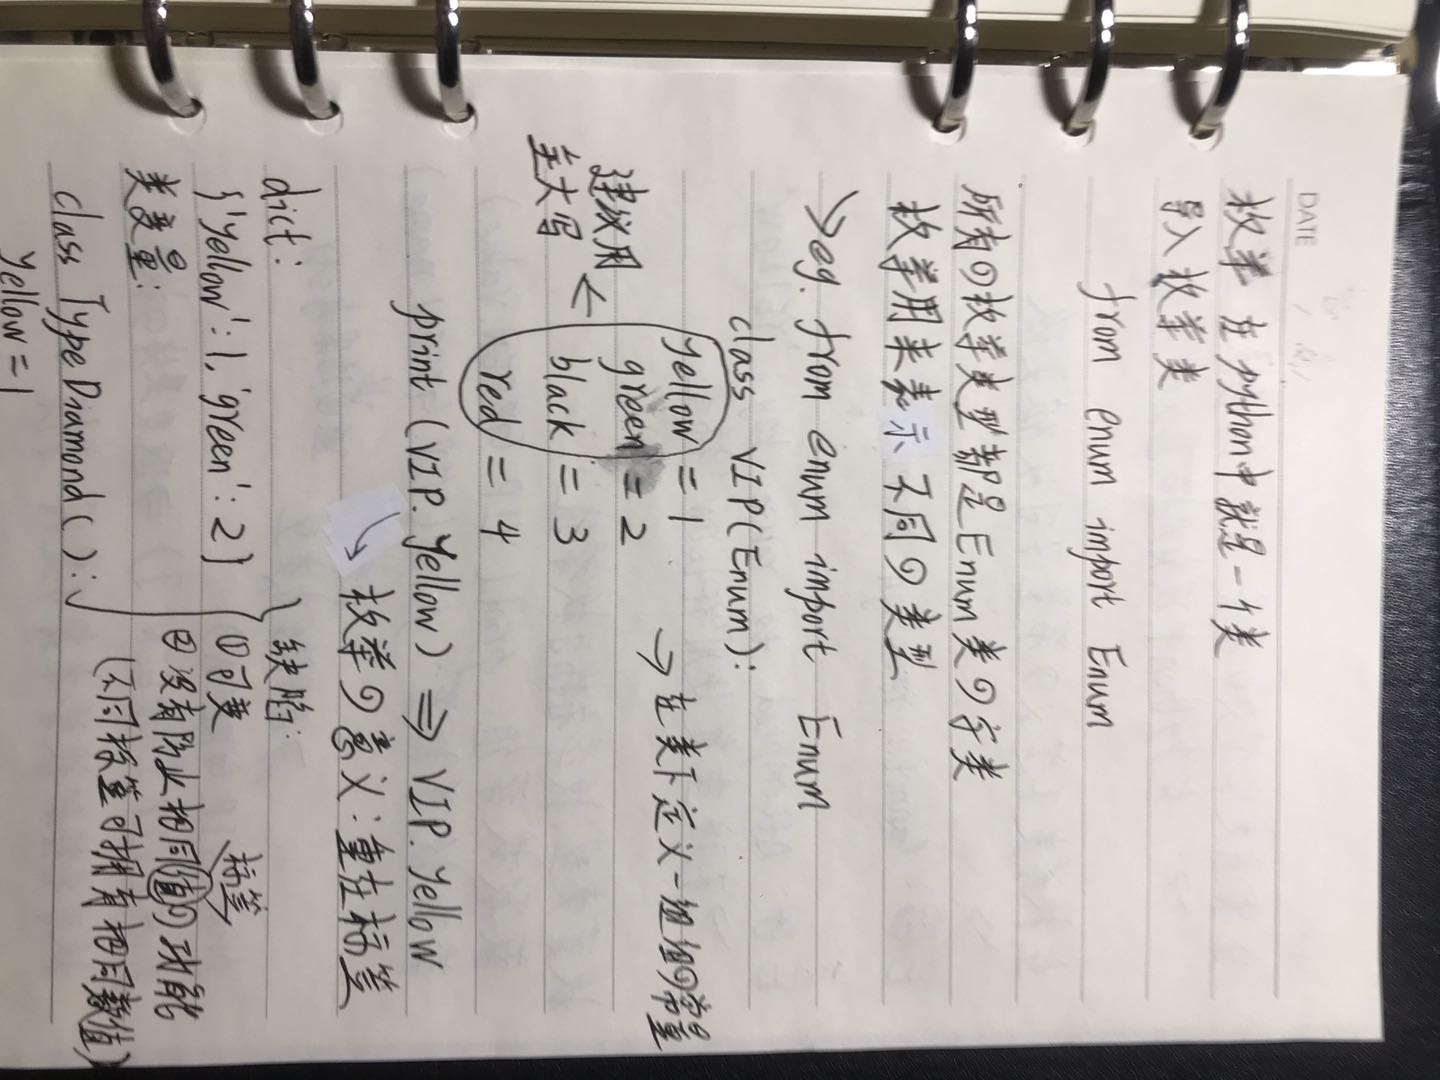 DATE / /
枚举 在python中就是一个类
导入枚举类
from enum import Enum
所有的枚举类型都是Enum类的字类
枚举用来表示不同的类型
→eg. from enum import Enum
class VIP(Enum):
yellow = 1 → 在类下定义一组值的常量
green = 2
black = 3
red = 4
建议用
全大写 ←
print (VIP.yellow) ⇒ VIP.yellow
枚举的意义:重在标签
dict: 缺陷:
{'yellow':1,'green':2} ①可变
类变量: ②没有防止相同值的功能
标签
class TypeDiamond(): (不同标签可拥有相同数值)
yellow = 1